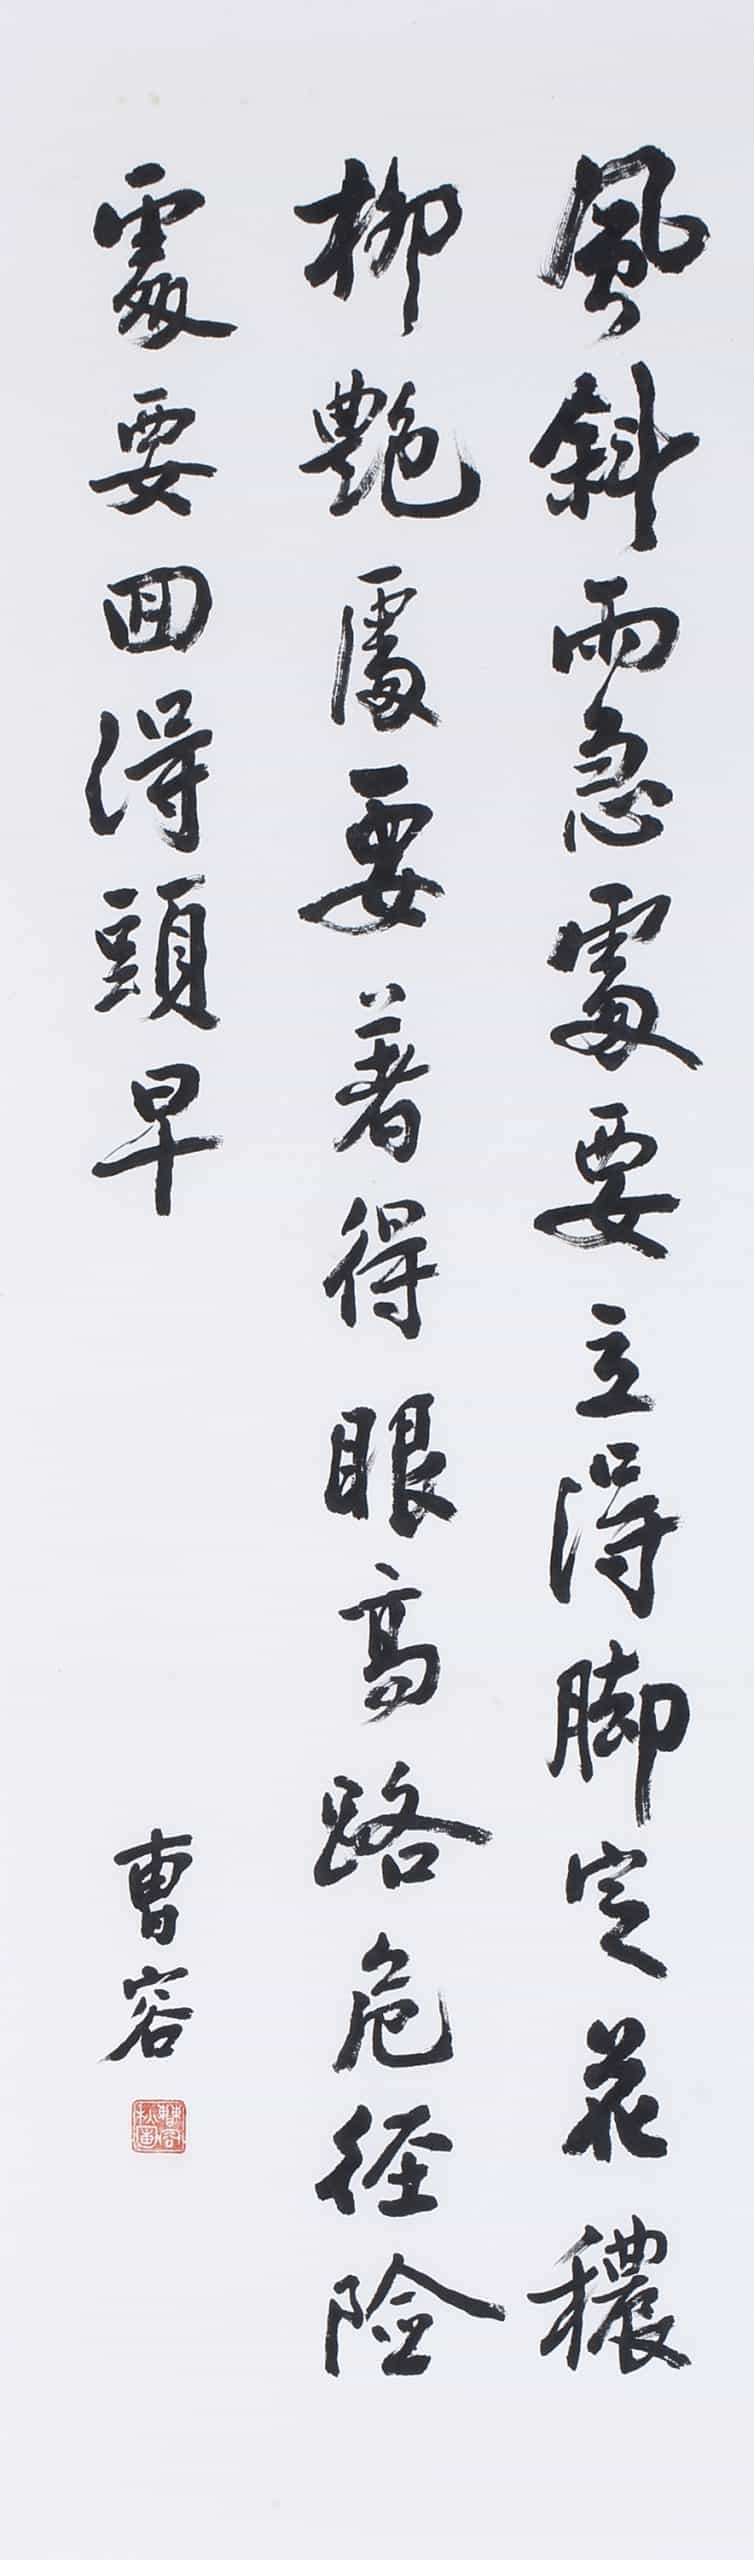 風斜雨急處要立得脚定花穠
柳艶處要著得眼高路危徑險
處要回得頭早
曹容